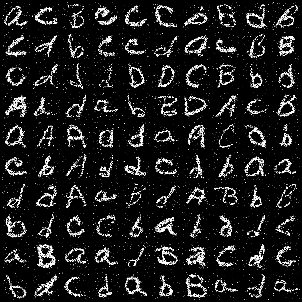 a C B C C C b B d A
C d b C C d a C B B
C d d d D D C B b d
A b d a b B D A C B
a A A a d a A C a b
C b A d d C d b a a
d a A a B d A B b B
b d C C b a b d d C
a B a a d B a C d C
b d C d a b B a d a